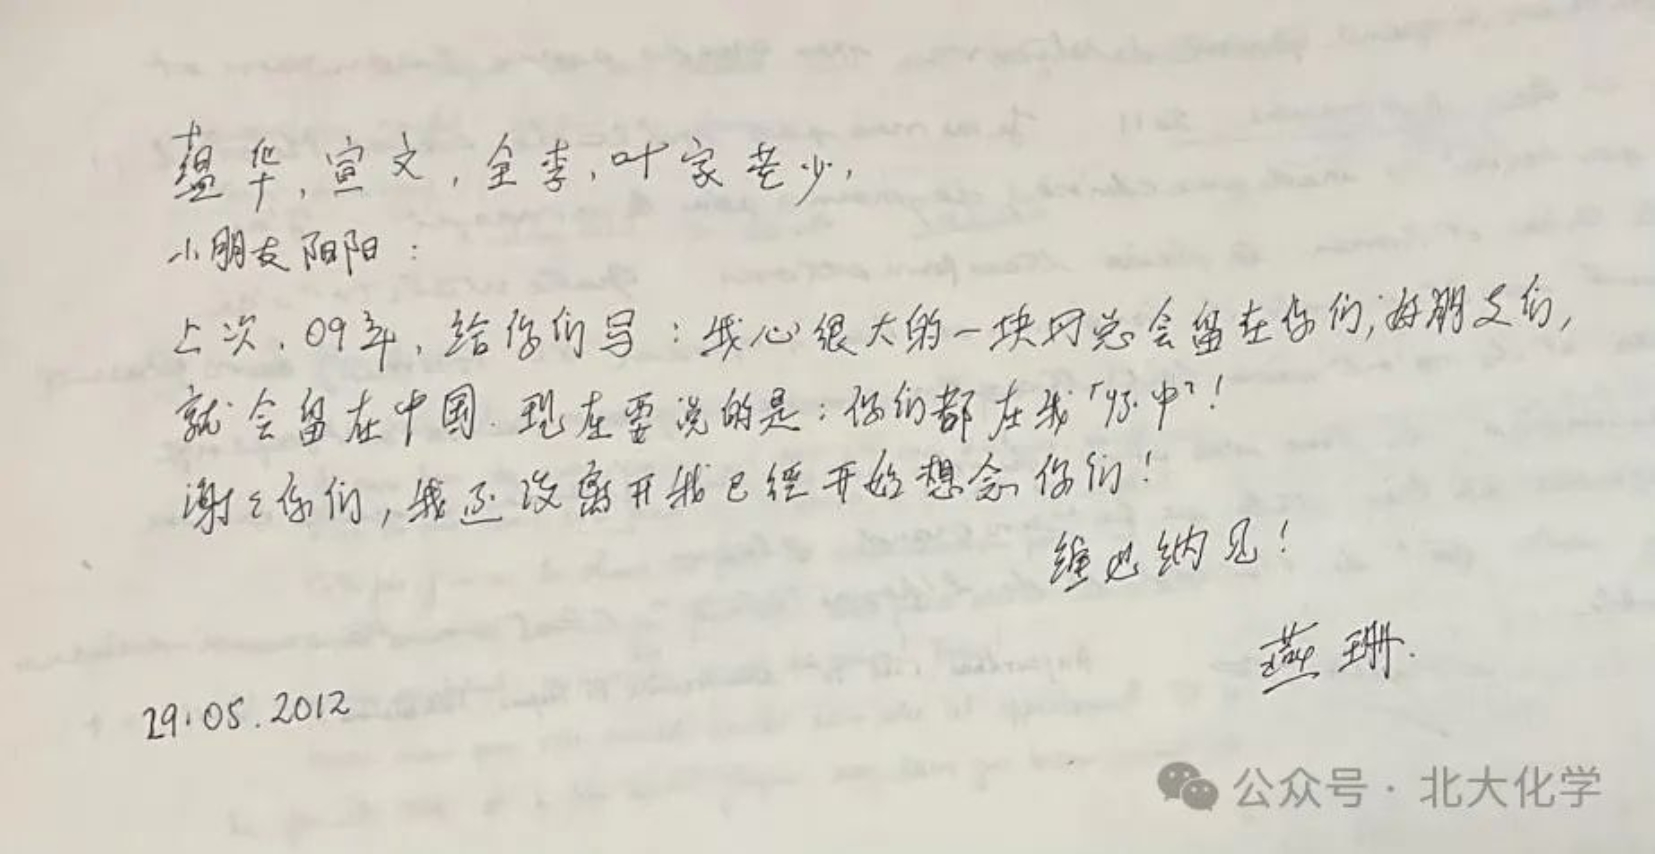 蕴华，宣文，全李，叶家老少，
小朋友阳阳：
上次，09年，给你们写：我心很大的一块肉总会留在你们，好朋友们，
就会留在中国．现在要说的是：你们都在我「怀中」！
谢々你们，我还没离开我已经开始想念你们！
维也纳见！
燕珊．
29.05.2012
公众号·北大化学